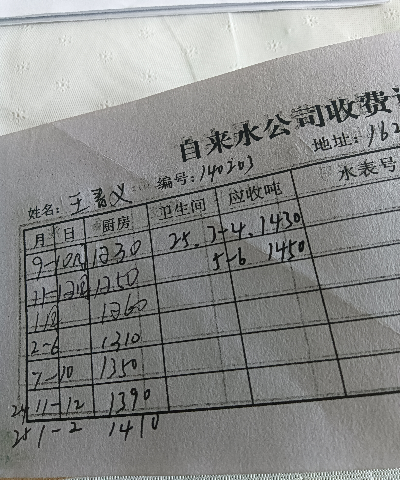 自来水公司收费
编号:140203 地址:162
姓名:王 义
月 日 厨房 卫生间 应收吨 水表号
9-10月 1230 25. 3-4. 1430
11-12月 1250 5-6 1450
1260
2-6 1310
7-10 1350
24 11-12 1390
25 1-2 1410